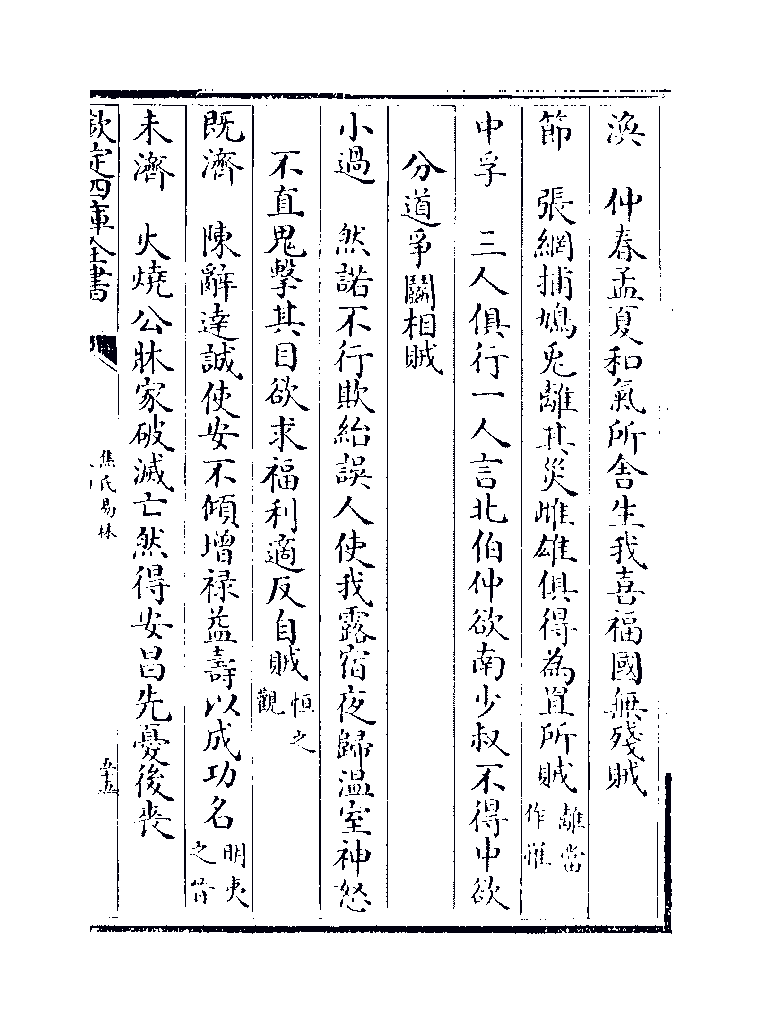 渙　仲春孟夏和氣所舍生我喜福國無殘賊
節　張網捕鳩兎離其災雌雄俱得為罝所賊離當作罹
中孚　三人俱行一人言北伯仲欲南少叔不得中欲
分道爭鬭相賊
小過　然諾不行欺紿誤人使我露宿夜歸溫室神怒
不直鬼擊其目欲求福利適反自賊恒之觀
既濟　陳辭達誠使安不傾增祿益壽以成功名明夷之晉
未濟　火燒公牀家破滅亡然得安昌先憂後喪
欽定四庫全書
焦氏易林
五十五